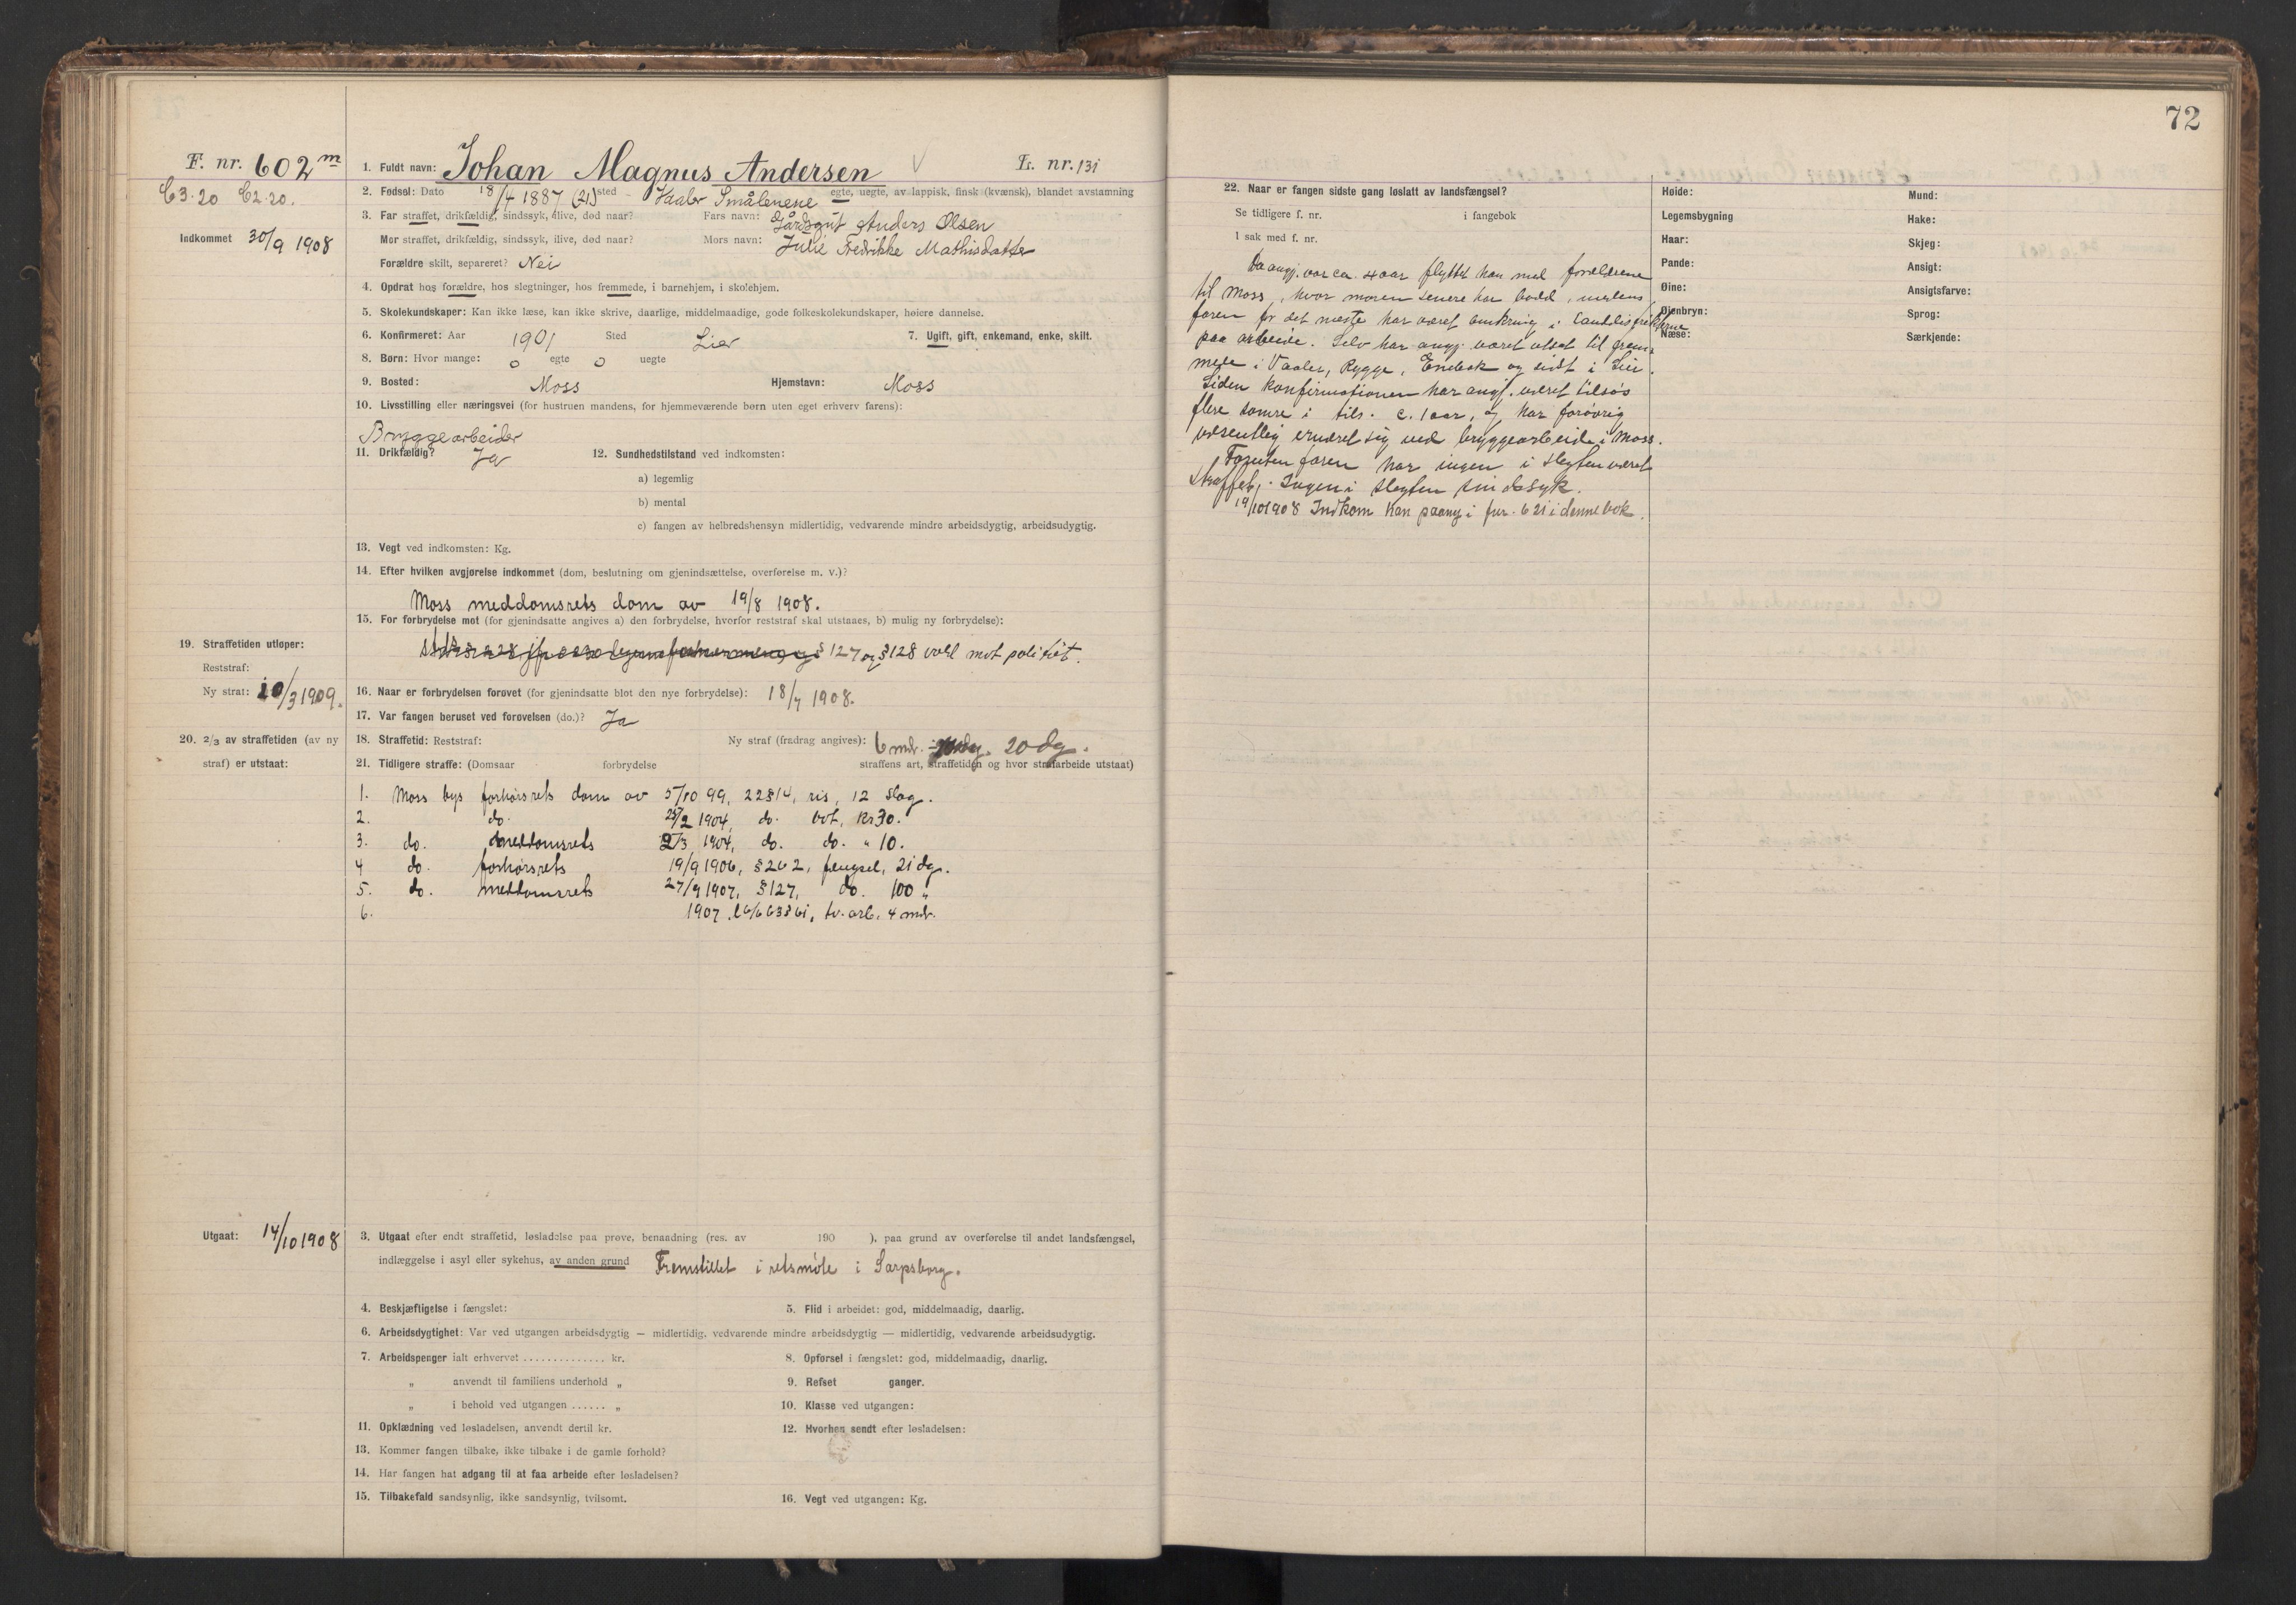 72
F. nr. 602 m
1. Fuldt navn: Johan Magnus Andersen
L. nr. 131
C3.20 C2.20.
2. Fødsel: Dato 18/4 1887 (21) sted Vaaler Smålenene egte, uegte, av lappisk, finsk (kvænsk), blandet avstamning
3. Far straffet, drikfældig, sindssyk, ilive, død naar? Fars navn: Gårdsgut Anders Olsen
Indkommet 30/9 1908
Mor straffet, drikfældig, sindssyk, ilive, død naar? Mors navn: Julie Fredrikke Mathisdatter
Forældre skilt, separeret? Nei
4. Opdrat hos forældre, hos slegtninger, hos fremmede, i barnehjem, i skolehjem.
5. Skolekundskaper: Kan ikke læse, kan ikke skrive, daarlige, middelmaadige, gode folkeskolekundskaper, høiere dannelse.
6. Konfirmeret: Aar 1901 Sted Lier 7. Ugift, gift, enkemand, enke, skilt.
8. Børn: Hvor mange: 0 egte 0 uegte
9. Bosted: Moss Hjemstavn: Moss
10. Livsstilling eller næringsvei (for hustruen mandens, for hjemmeværende børn uten eget erhverv farens):
Bryggearbeider
11. Drikfældig? Ja 12. Sundhedstilstand ved indkomsten:
a) legemlig
b) mental
c) fangen av helbredshensyn midlertidig, vedvarende mindre arbeidsdygtig, arbeidsudygtig.
13. Vegt ved indkomsten: Kg.
14. Efter hvilken avgjørelse indkommet (dom, beslutning om gjenindsættelse, overførelse m. v.)?
Moss meddomsrets dom av 19/8 1908.
15. For forbrydelse mot (for gjenindsatte angives a) den forbrydelse, hvorfor reststraf skal utstaaes, b) mulig ny forbrydelse):
§ 127 og § 128 vold mot politiet.
19. Straffetiden utløper:
Reststraf:
Ny straf: 10/3 1909.
16. Naar er forbrydelsen forøvet (for gjenindsatte blot den nye forbrydelse): 18/7 1908.
17. Var fangen beruset ved forøvelsen (do.)? Ja
20. 2/3 av straffetiden (av ny
straf) er utstaat:
18. Straffetid: Reststraf: Ny straf (fradrag angives): 6 mdr. 20 dg.
21. Tidligere straffe: (Domsaar forbrydelse straffens art, straffetiden og hvor strafarbeide utstaat)
1. Moss bys forhørsrets dom av 5/10 99, 22 § 14, ris, 12 slag.
2. do. 25/2 1904, do. bot, kr 30.
3. do. meddomsrets 2/3 1904, do. do. " 10.
4 do. forhørsrets 19/9 1906, § 262, fængsel, 21 dg.
5. do. meddomsrets 27/9 1907, § 127, do. 100 "
6. 1907, tv. arb. 4 mdr.
Utgaat: 14/10 1908
3. Utgaat efter endt straffetid, løsladelse paa prøve, benaadning (res. av 190 ), paa grund av overførelse til andet landsfængsel,
indlæggelse i asyl eller sykehus, av anden grund Fremstillet i retsmøte i Sarpsborg.
4. Beskjæftigelse i fængslet: 5. Flid i arbeidet: god, middelmaadig, daarlig.
6. Arbeidsdygtighet: Var ved utgangen arbeidsdygtig — midlertidig, vedvarende mindre arbeidsdygtig — midlertidig, vedvarende arbeidsudygtig.
7. Arbeidspenger ialt erhvervet .............. kr. 8. Opførsel i fængslet: god, middelmaadig, daarlig.
" anvendt til familiens underhold " 9. Refset ganger.
" i behold ved utgangen ...... " 10. Klasse ved utgangen:
11. Opklædning ved løsladelsen, anvendt dertil kr. 12. Hvorhen sendt efter løsladelsen:
13. Kommer fangen tilbake, ikke tilbake i de gamle forhold?
14. Har fangen hat adgang til at faa arbeide efter løsladelsen?
15. Tilbakefald sandsynlig, ikke sandsynlig, tvilsomt. 16. Vegt ved utgangen: Kg.
22. Naar er fangen sidste gang løslatt av landsfængsel?
Se tidligere f. nr. i fangebok
I sak med f. nr.
Da angj. var ca. 4 aar flyttet han med forældrene
til Moss, hvor moren senere har bodd, medens
faren for det meste har været omkring i landdistrikterne
paa arbeide. Selv har angj. været utsat til frem-
mede i Vaaler, Rygge, Enebak og sidst i Lier.
Siden konfirmationen har angj. været tilsjøs
flere somre i tils. c. 1 aar, og har forøvrig
væsentlig ernæret sig ved bryggearbeide i Moss.
Foruten faren har ingen i slegten været
straffet. Ingen i slegten sindssyk.
14/10 1908 Indkom han paany i fnr. 621 i denne bok.
Høide:
Legemsbygning
Haar:
Pande:
Øine:
Øienbryn:
Næse:
Mund:
Hake:
Skjeg:
Ansigt:
Ansigtsfarve:
Sprog:
Særkjende: